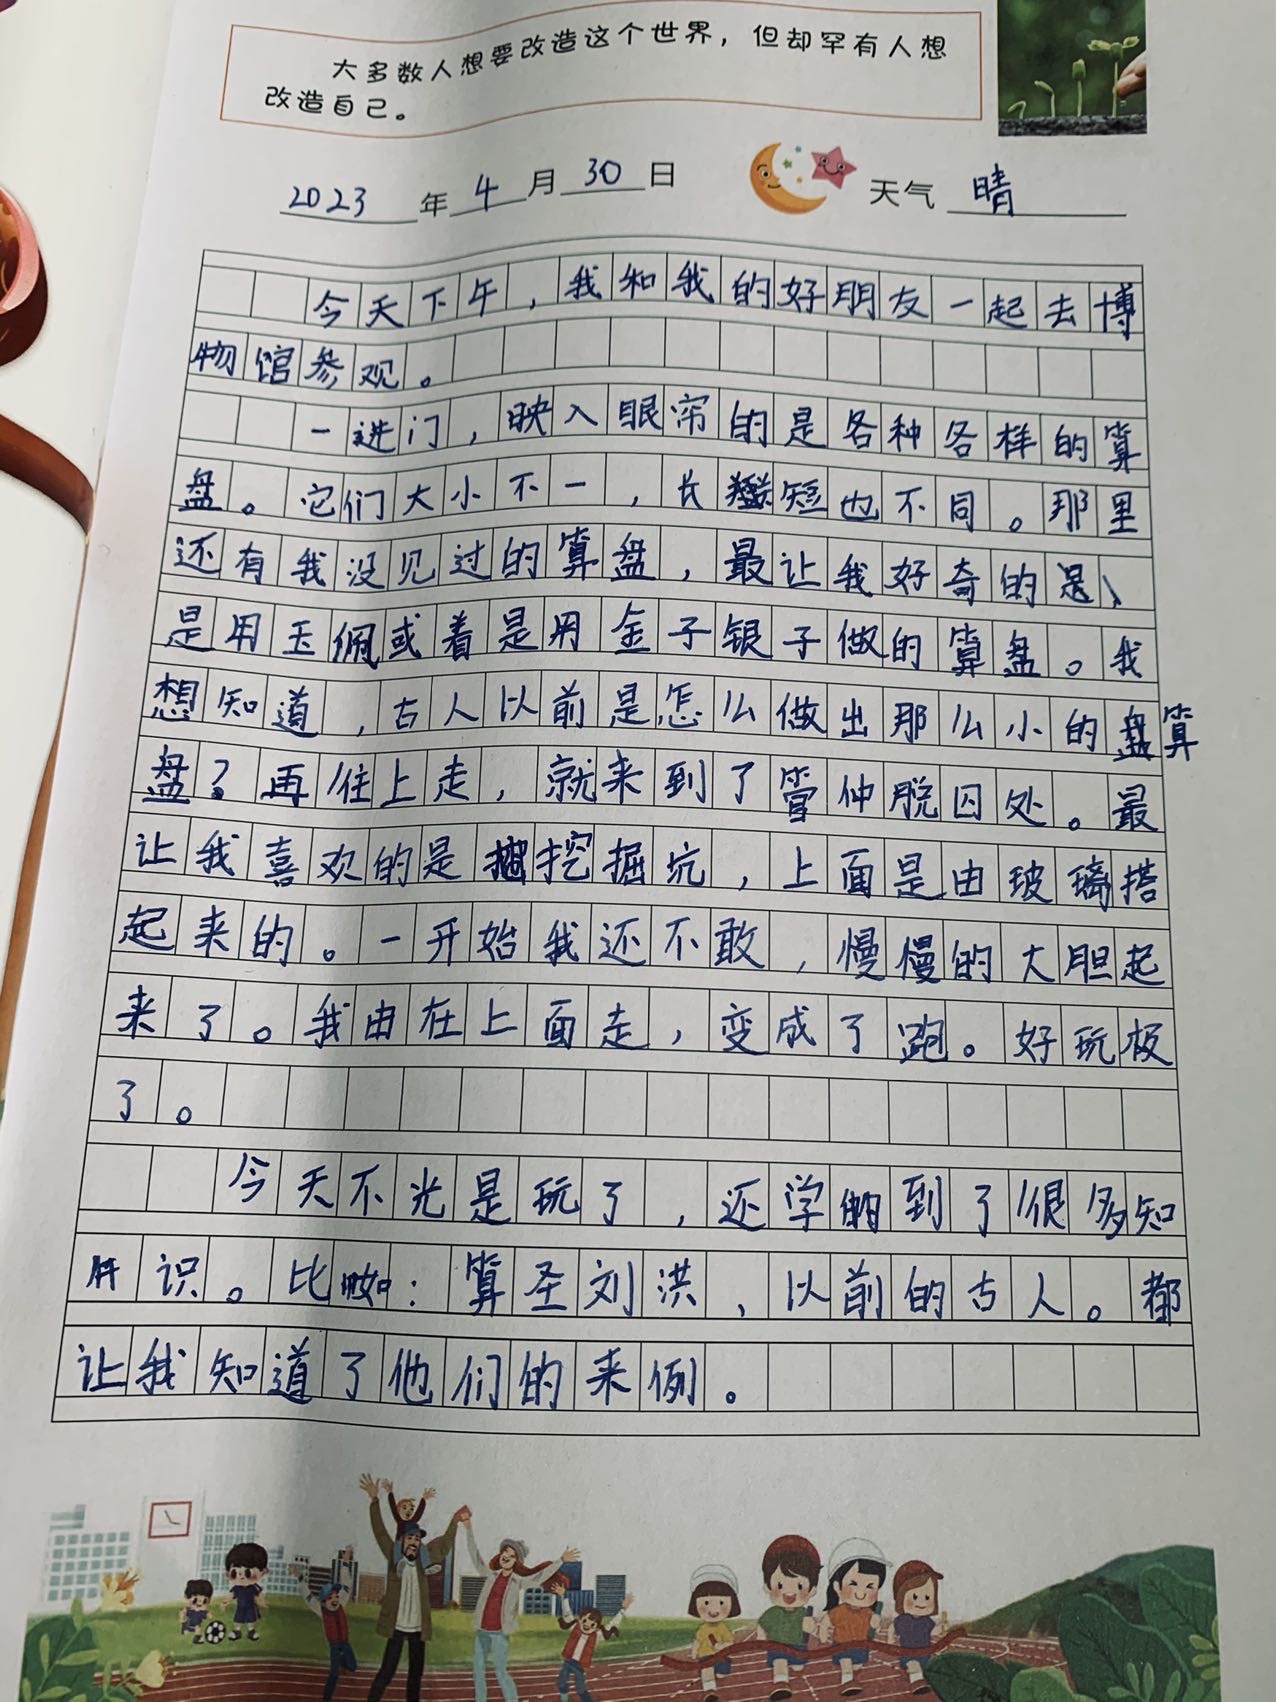 大多数人想要改造这个世界，但却罕有人想
改造自己。
2023年4月30日 天气 晴
今天下午，我和我的好朋友一起去博
物馆参观。
一进门，映入眼帘的是各种各样的算
盘。它们大小不一，长短也不同。那里
还有我没见过的算盘，最让我好奇的是、
是用玉佩或着是用金子银子做的算盘。我
想知道，古人以前是怎么做出那么小的算
盘？再往上走，就来到了管仲脱囚处。最
让我喜欢的是挖掘坑，上面是由玻璃搭
起来的。一开始我还不敢，慢慢的大胆起
来了。我由在上面走，变成了跑。好玩极
了。
今天不光是玩了，还学到了很多知
识。比如：算圣刘洪、以前的古人。都
让我知道了他们的来例。